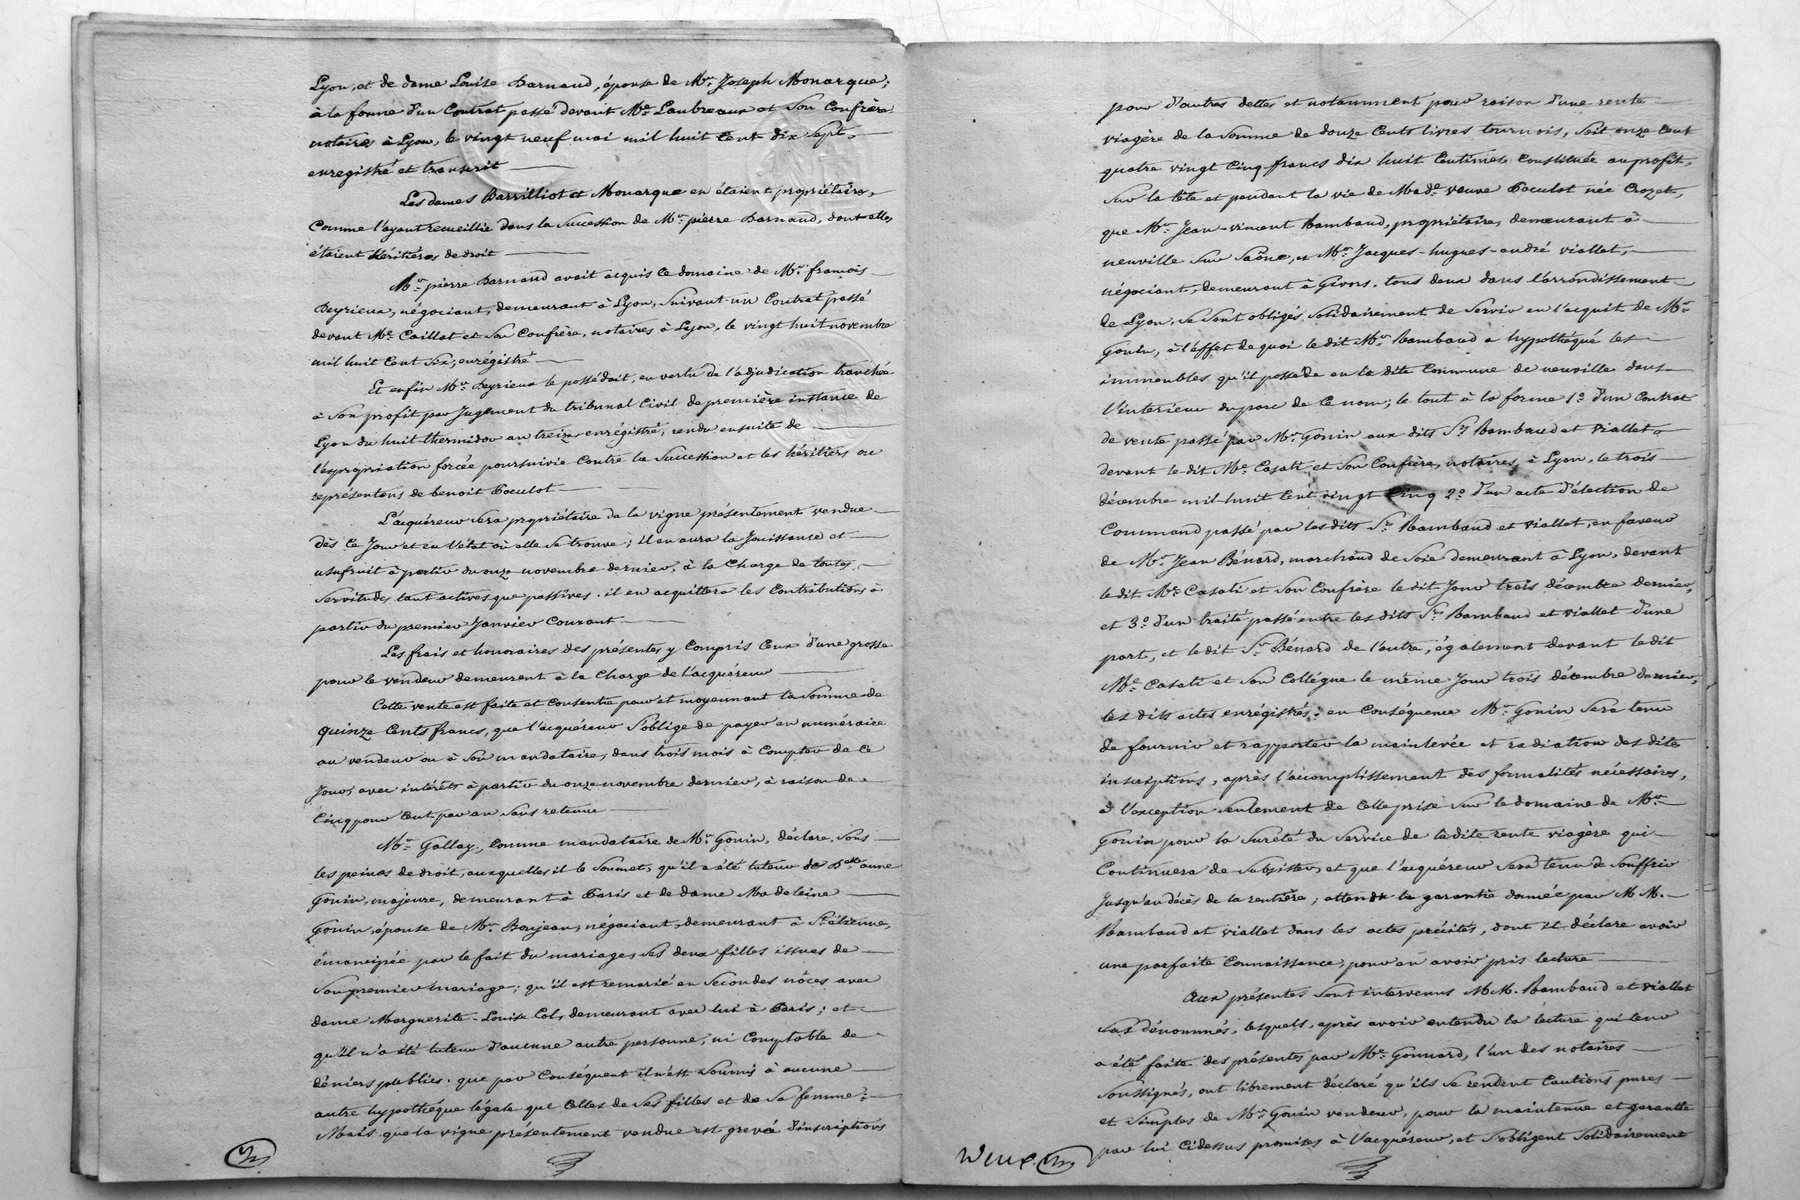 Lyon, et de dame Louise Barnaud, épouse de Mr. Joseph Monarque;
à la forme d'un Contrat passé devant Me. Laubreaux et Son Confrère
notaires à Lyon, le vingt neuf mai mil huit Cent dix Sept,
enregistré et transcrit
Les dames Barrilliot et Monarque en étaient propriétaires,
Comme l'ayant recueillie dans la Succession de Mr. pierre Barnaud, dont elles
étaient héritières de droit
Mr. pierre Barnaud avait acquis ce domaine de Mr. francois
Deyrieux, négociant, demeurant à Lyon, Suivant un Contrat passé
devant Me. Caillat et Son Confrère, notaires à Lyon, le vingt huit novembre
mil huit Cent Six; enrégistré
Et enfin Mr. Deyrieux le possédait, en vertu de l'adjudication tranchée
à Son profit par Jugement du tribunal Civil de première instance de
Lyon du huit thermidor an treize enrégistré, rendu ensuite de
l'expropriation forcée poursuivie Contre la Succession et les héritiers ou
représentans de benoit Poculot
L'acquéreur Sera propriétaire de la vigne présentement vendue
dès Ce Jour et en l'état où elle Se trouve; il en aura la Jouissance et
usufruit à partir du onze novembre dernier, à la Charge de toutes
Servitudes tant actives que passives. il en acquittera les Contributions à
partir du premier Janvier Courant
Les frais et honoraires des présentes, y Compris Ceux d'une grosse
pour le vendeur demeurent à la Charge de l'acquéreur
Cette vente est faite et Consentie pour et moyennant la Somme de
quinze Cents francs, que l'acquéreur S'oblige de payer en numéraire
au vendeur ou à Son mandataire, dans trois mois à Compter de Ce
Jour, avec intérêts à partir du onze novembre dernier, à raison de
Cinq pour Cent par an Sans retenue
Mr. Gallay, Comme mandataire de Mr. Gonin, déclare, Sous
les peines de droit, auxquelles il le Soumet, qu'il a été tuteur de Delle. anne
Gonin, majeure, demeurant à Paris et de dame Madeleine
Gonin, épouse de Mr. Boujeau, négociant, demeurant à St. étienne,
émancipée par le fait du mariage, Ses deux filles issues de
Son premier mariage; qu'il est remarié en Secondes nôces avec
dame Marguerite-Louise Col, demeurant avec lui à Paris; et
qu'il n'a été tuteur d'aucune autre personne, ni Comptable de
déniers publics. que par Conséquent il n'est Soumis à aucune
autre hypothéque légale que Celles de Ses filles et de Sa femme;
Mais que la vigne présentement vendue est grevée d'inscriptions
pour d'autres dettes et notamment pour raison d'une rente
viagère de la Somme de douze Cents livres tournois, Soit onze Cent
quatre vingt Cinq francs dix huit Centimes Constituée au profit,
Sur la tête et pendant la vie de Made. veuve Poculot née Crozet,
que Mr. Jean-vincent Rambaud, propriétaire, demeurant à
neuville Sur Saône, et Mr. Jacques-hugues-andré viallet,
négociant, demeurant à Givors. tous deux dans l'arrondissement
de Lyon, Se Sont obligés Solidairement de Servir en l'acquit de Mr.
Gonin, à l'éffet de quoi le dit Mr. Rambaud a hypothéqué les
immeubles qu'il posséde en la dite Commune de neuville dans
l'interieur du parc de Ce nom; le tout à la forme 1o. d'un Contrat
de vente passé par Mr. Gonin aux dits Srs. Rambaud et viallet
devant le dit Me. Casati et Son Confrère, notaires à Lyon, le trois
décembre mil huit Cent vingt Cinq 2o. d'un acte d'élection de
Command passé par les dits Srs. Rambaud et viallet, en faveur
de Mr. Jean Bénard, marchand de Soie demeurant à Lyon, devant
le dit Me. Casati et Son Confrère le dit Jour trois décembre dernier,
et 3o. d'un traité passé entre les dits Srs. Rambaud et viallet d'une
part, et le dit Sr. Bénard de l'autre, également devant le dit
Me. Casati et Son Collégue le même Jour trois décembre dernier,
les dits actes enrégistrés; en Conséquence Mr. Gonin Sera tenu
de fournir et rapporter la mainlevée et radiation des dites
inscriptions, après l'accomplissement des formalités nécessaires,
à l'exception Seulement de Celle prise Sur le domaine de Mr.
Gonin pour la Sureté du Service de la dite rente viagère qui
Continuera de Subsister, et que l'acquéreur Sera tenu de Souffrir
Jusqu'au décès de la rentière; attendu la garantie donnée par MM.
Rambaud et viallet dans les actes précités, dont il déclare avoir
une parfaite Connaissance, pour en avoir pris lecture
Aux présentes Sont intervenus MM. Rambaud et viallet
Sus dénommés, lesquels, après avoir entendu la lecture qui leur
a été faite des présentes par Me. Gonnard, l'un des notaires
Soussignés, ont librement déclaré qu'ils Se rendent Cautions pures
et Simples de Mr. Gonin vendeur, pour la maintenue et garantie
par lui Cidessus promises à l'acquéreur, et S'obligent Solidairement